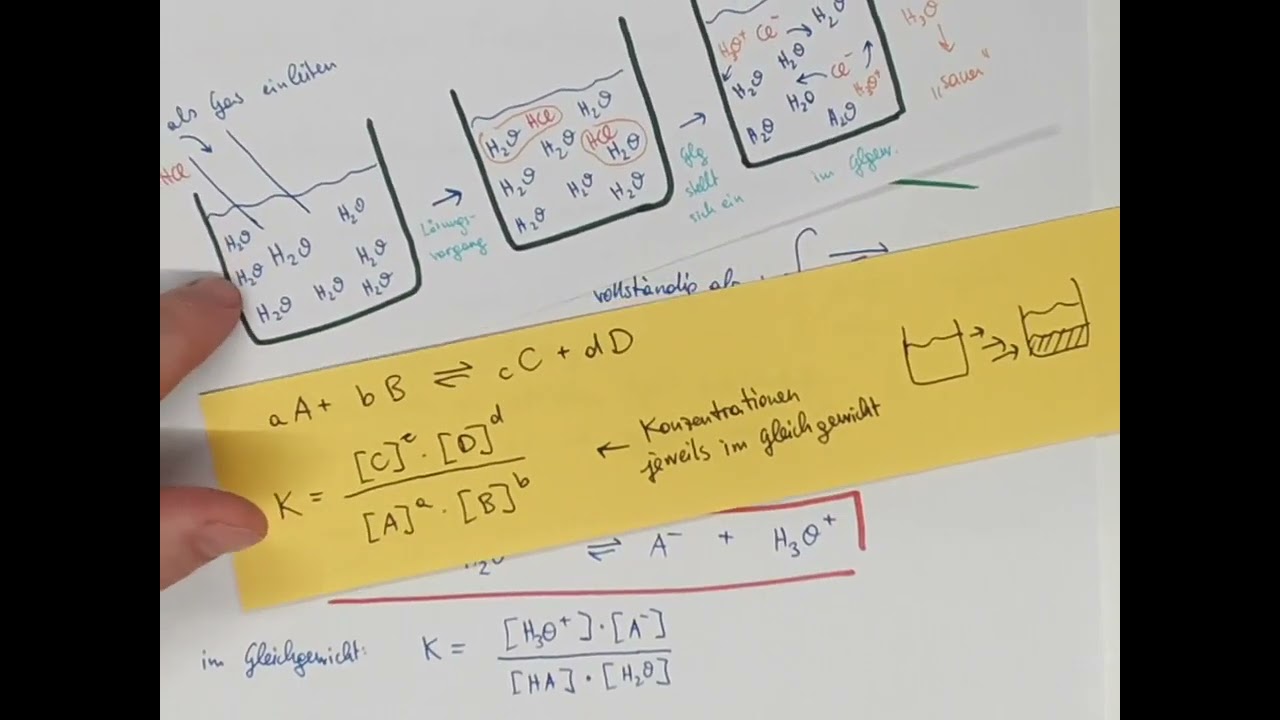 als Gas einleiten
HCl
H₂O
H₂O
H₂O
H₂O
H₂O
H₂O
H₂O
H₂O
Lösungs-
vorgang
H₂O HCl
H₂O
H₂O
HCl
H₂O
H₂O
H₂O
H₂O
H₂O
Glg
stellt
sich ein
H₃O⁺ Cl⁻
H₂O
H₂O
H₂O
Cl⁻
H₂O
H₃O⁺
H₂O
H₂O
im Glgew.
H₃O
"sauer"
vollständig
aA + bB ⇌ cC + dD
K = [C]ᶜ · [D]ᵈ / [A]ᵃ · [B]ᵇ
← Konzentrationen
jeweils im Gleichgewicht
H₂O ⇌ A⁻ + H₃O⁺
im Gleichgewicht: K = [H₃O⁺] · [A⁻] / [HA] · [H₂O]